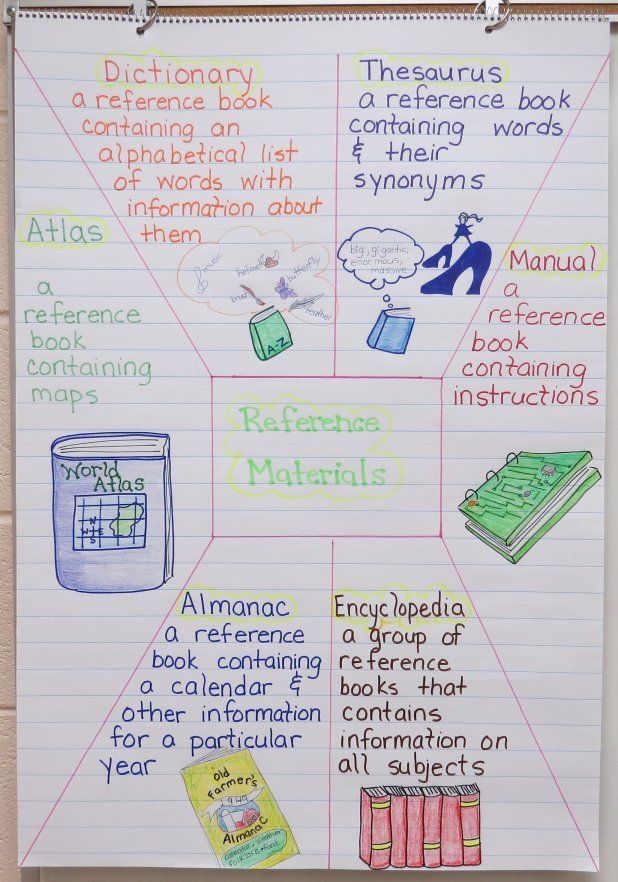 Dictionary
a reference book
containing an
alphabetical list
of words with
information about
them
music
helmet
butterfly
brush
feather
A-Z
Thesaurus
a reference book
containing words
& their
synonyms
big, gigantic,
enormous,
massive
Atlas
a
reference
book
containing
maps
World
Atlas
N
W E
S
Reference
Materials
Manual
a
reference
book
containing
instructions
Almanac
a reference
book containing
a calendar &
other information
for a particular
year
Old
Farmer's
Almanac
Calendar • Weather
Folklore • Food
Encyclopedia
a group of
reference
books that
contains
information on
all subjects